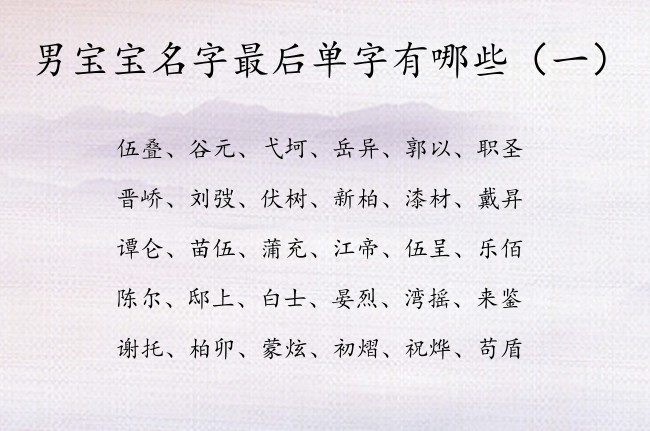 男宝宝名字最后单字有哪些（一）
伍叠、谷元、弋坷、岳异、郭以、职圣
晋峤、刘弢、伏树、新柏、漆材、戴昇
谭仑、苗伍、蒲充、江帝、伍呈、乐佰
陈尔、邸上、白士、晏烈、湾摇、来鉴
谢托、柏卯、蒙炫、初熠、祝烨、苟盾